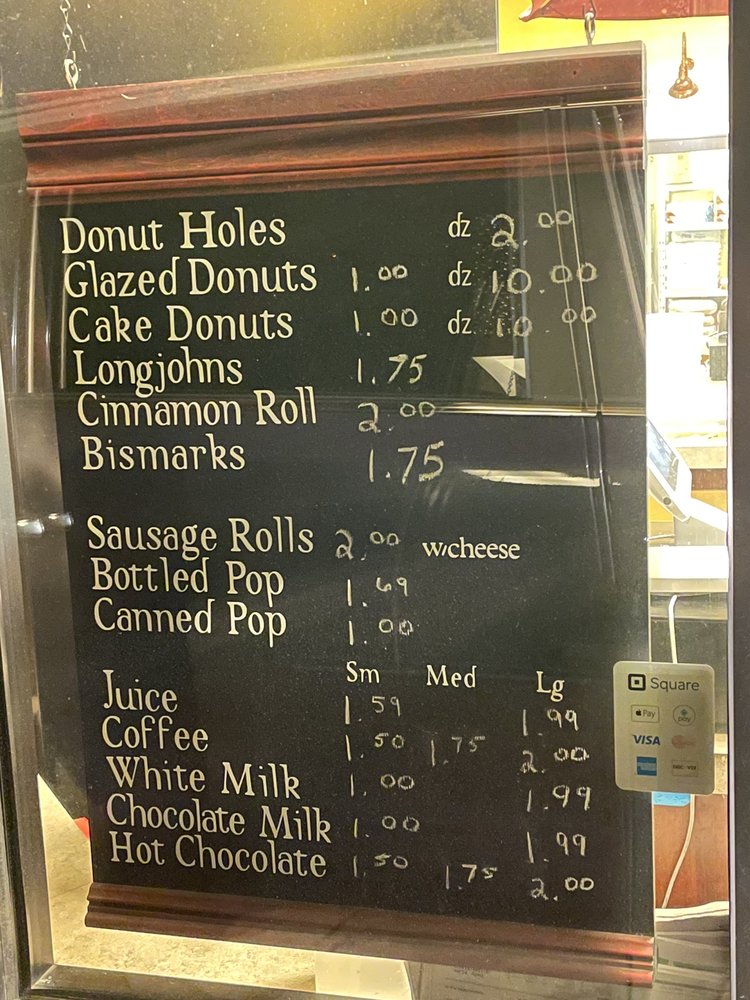 Donut Holes dz 2.00
Glazed Donuts 1.00 dz 10.00
Cake Donuts 1.00 dz 10.00
Longjohns 1.75
Cinnamon Roll 2.00
Bismarks 1.75
Sausage Rolls 2.00 w/cheese
Bottled Pop 1.69
Canned Pop 1.00
Sm Med Lg
Juice 1.59 1.99
Coffee 1.50 1.75 2.00
White Milk 1.00 1.99
Chocolate Milk 1.00 1.99
Hot Chocolate 1.50 1.75 2.00
Square
Pay pay
VISA